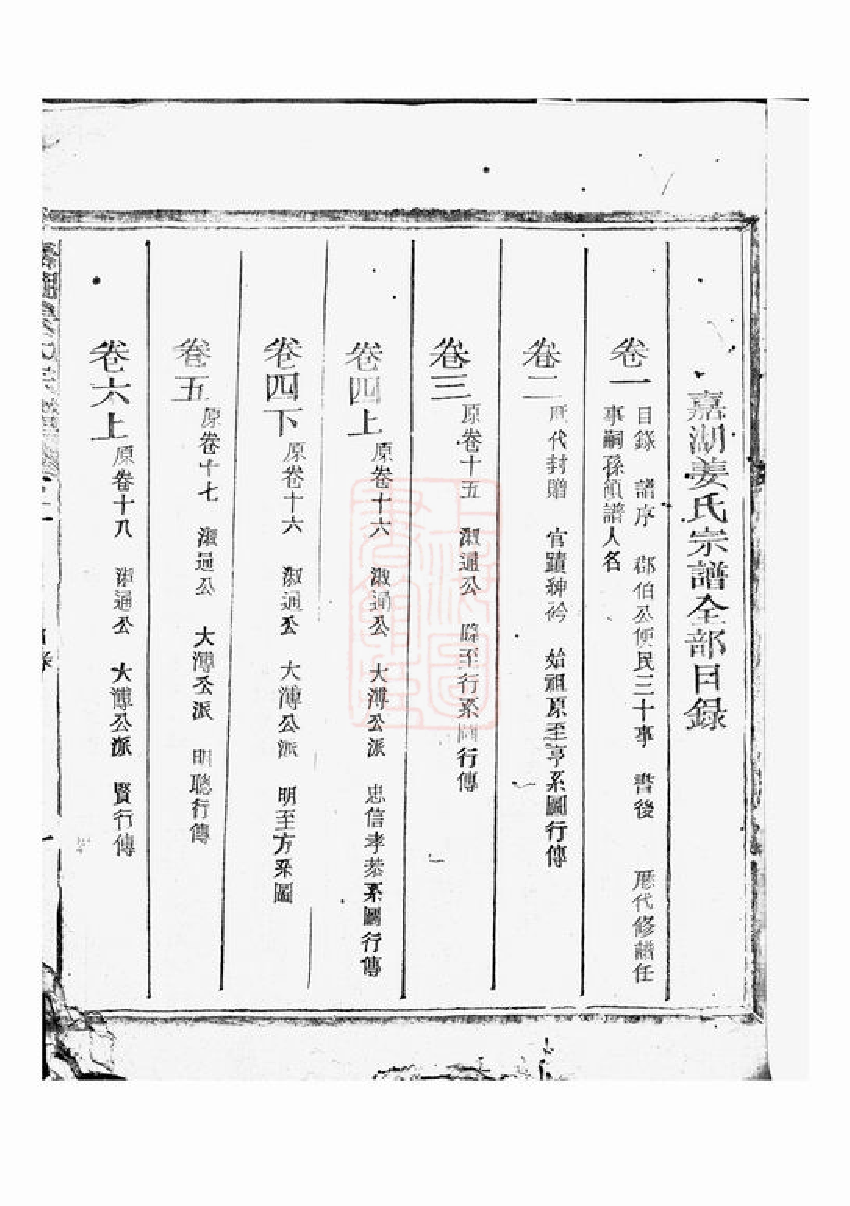 嘉湖姜氏宗譜全部目錄
卷一 目錄 譜序 郡伯公便民三十事 書後 歷代修譜任
事嗣孫領譜人名
卷二 歷代封贈 官蹟紳衿 始祖原至亨系圖行傳
卷三 原卷十五 淑通公 至行系圖行傳
卷四上 原卷十六 淑通公 大溥公派 忠信孝恭系圖行傳
卷四下 原卷十六 淑通公 大溥公派 明至方系圖
卷五 原卷十七 淑通公 大溥公派 明聰行傳
卷六上 原卷十八 淑通公 大溥公派 賢行傳